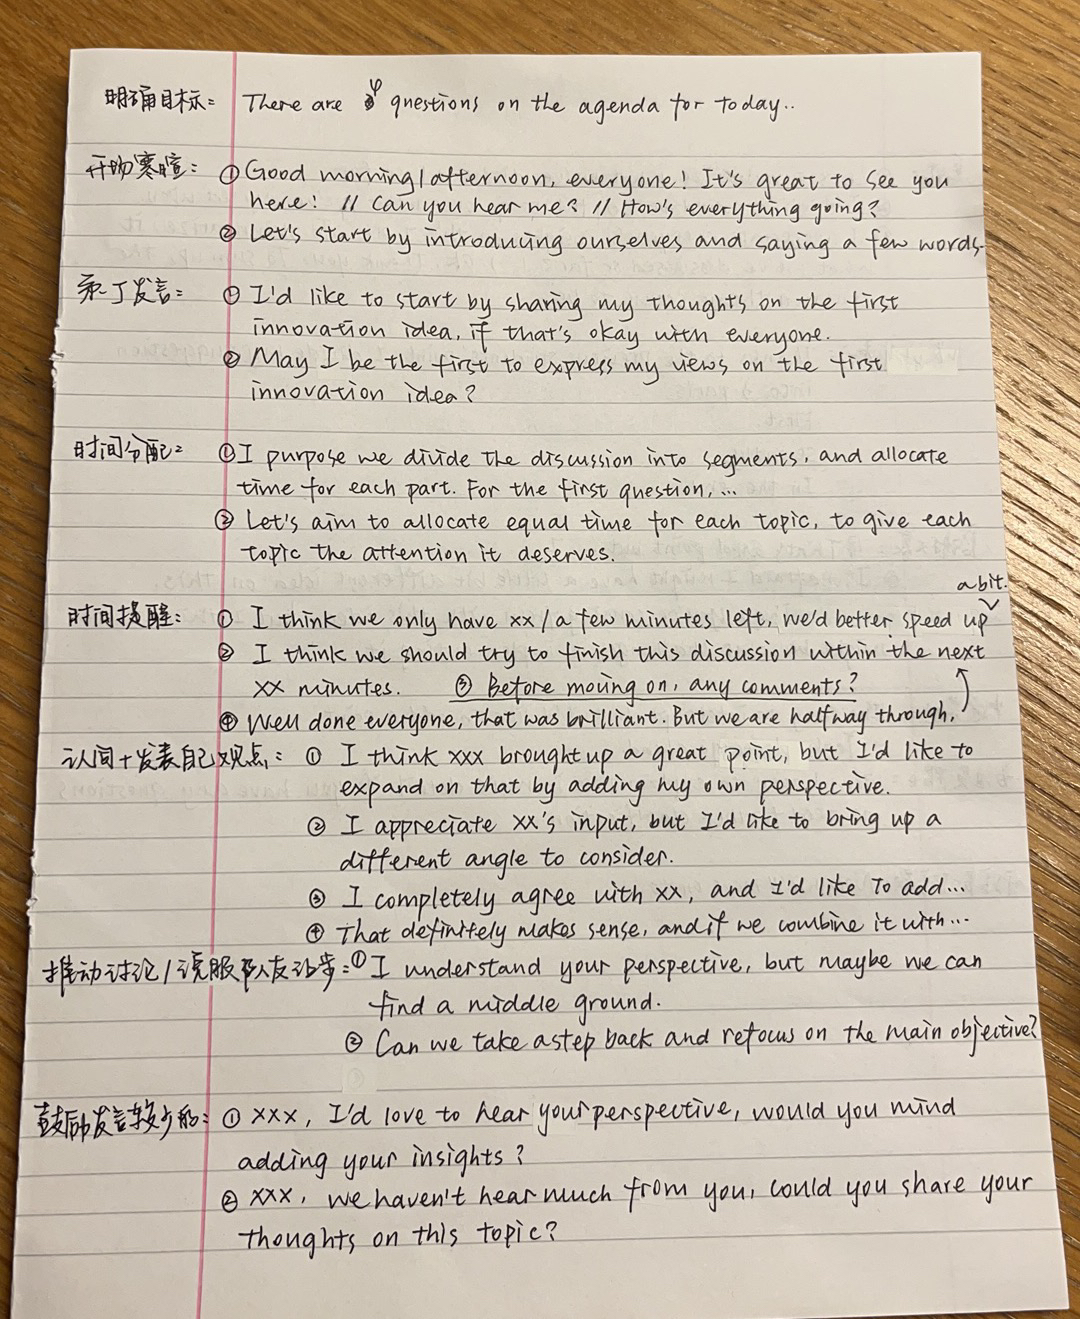 明确目标： There are 4 questions on the agenda for today..
开场寒暄： ① Good morning/afternoon, everyone! It's great to see you
here! // Can you hear me? // How's everything going?
② Let's start by introducing ourselves and saying a few words.
第一个发言： ① I'd like to start by sharing my thoughts on the first
innovation idea, if that's okay with everyone.
② May I be the first to express my views on the first
innovation idea?
时间分配： ① I purpose we divide the discussion into segments, and allocate
time for each part. For the first question, ...
② Let's aim to allocate equal time for each topic, to give each
topic the attention it deserves.
a bit.
时间提醒： ① I think we only have xx / a few minutes left, we'd better speed up
② I think we should try to finish this discussion within the next
xx minutes. ③ Before moving on, any comments?
④ Well done everyone, that was brilliant. But we are halfway through,
认同+发表自己观点： ① I think xxx brought up a great point, but I'd like to
expand on that by adding my own perspective.
② I appreciate xx's input, but I'd like to bring up a
different angle to consider.
③ I completely agree with xx, and I'd like To add...
④ That definitely makes sense, and if we combine it with...
推动讨论/说服队友让步： ① I understand your perspective, but maybe we can
find a middle ground.
② Can we take a step back and refocus on the main objective?
鼓励发言较少的： ① xxx, I'd love to hear your perspective, would you mind
adding your insights?
② xxx, we haven't hear much from you, could you share your
thoughts on this topic?